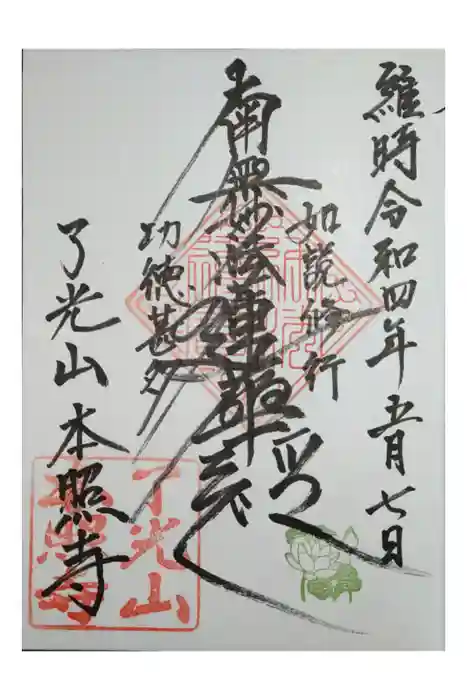 維時令和四年五月七日
如説修行
南無妙法蓮華経
功徳甚多
了光山本照寺
了光山
本照寺